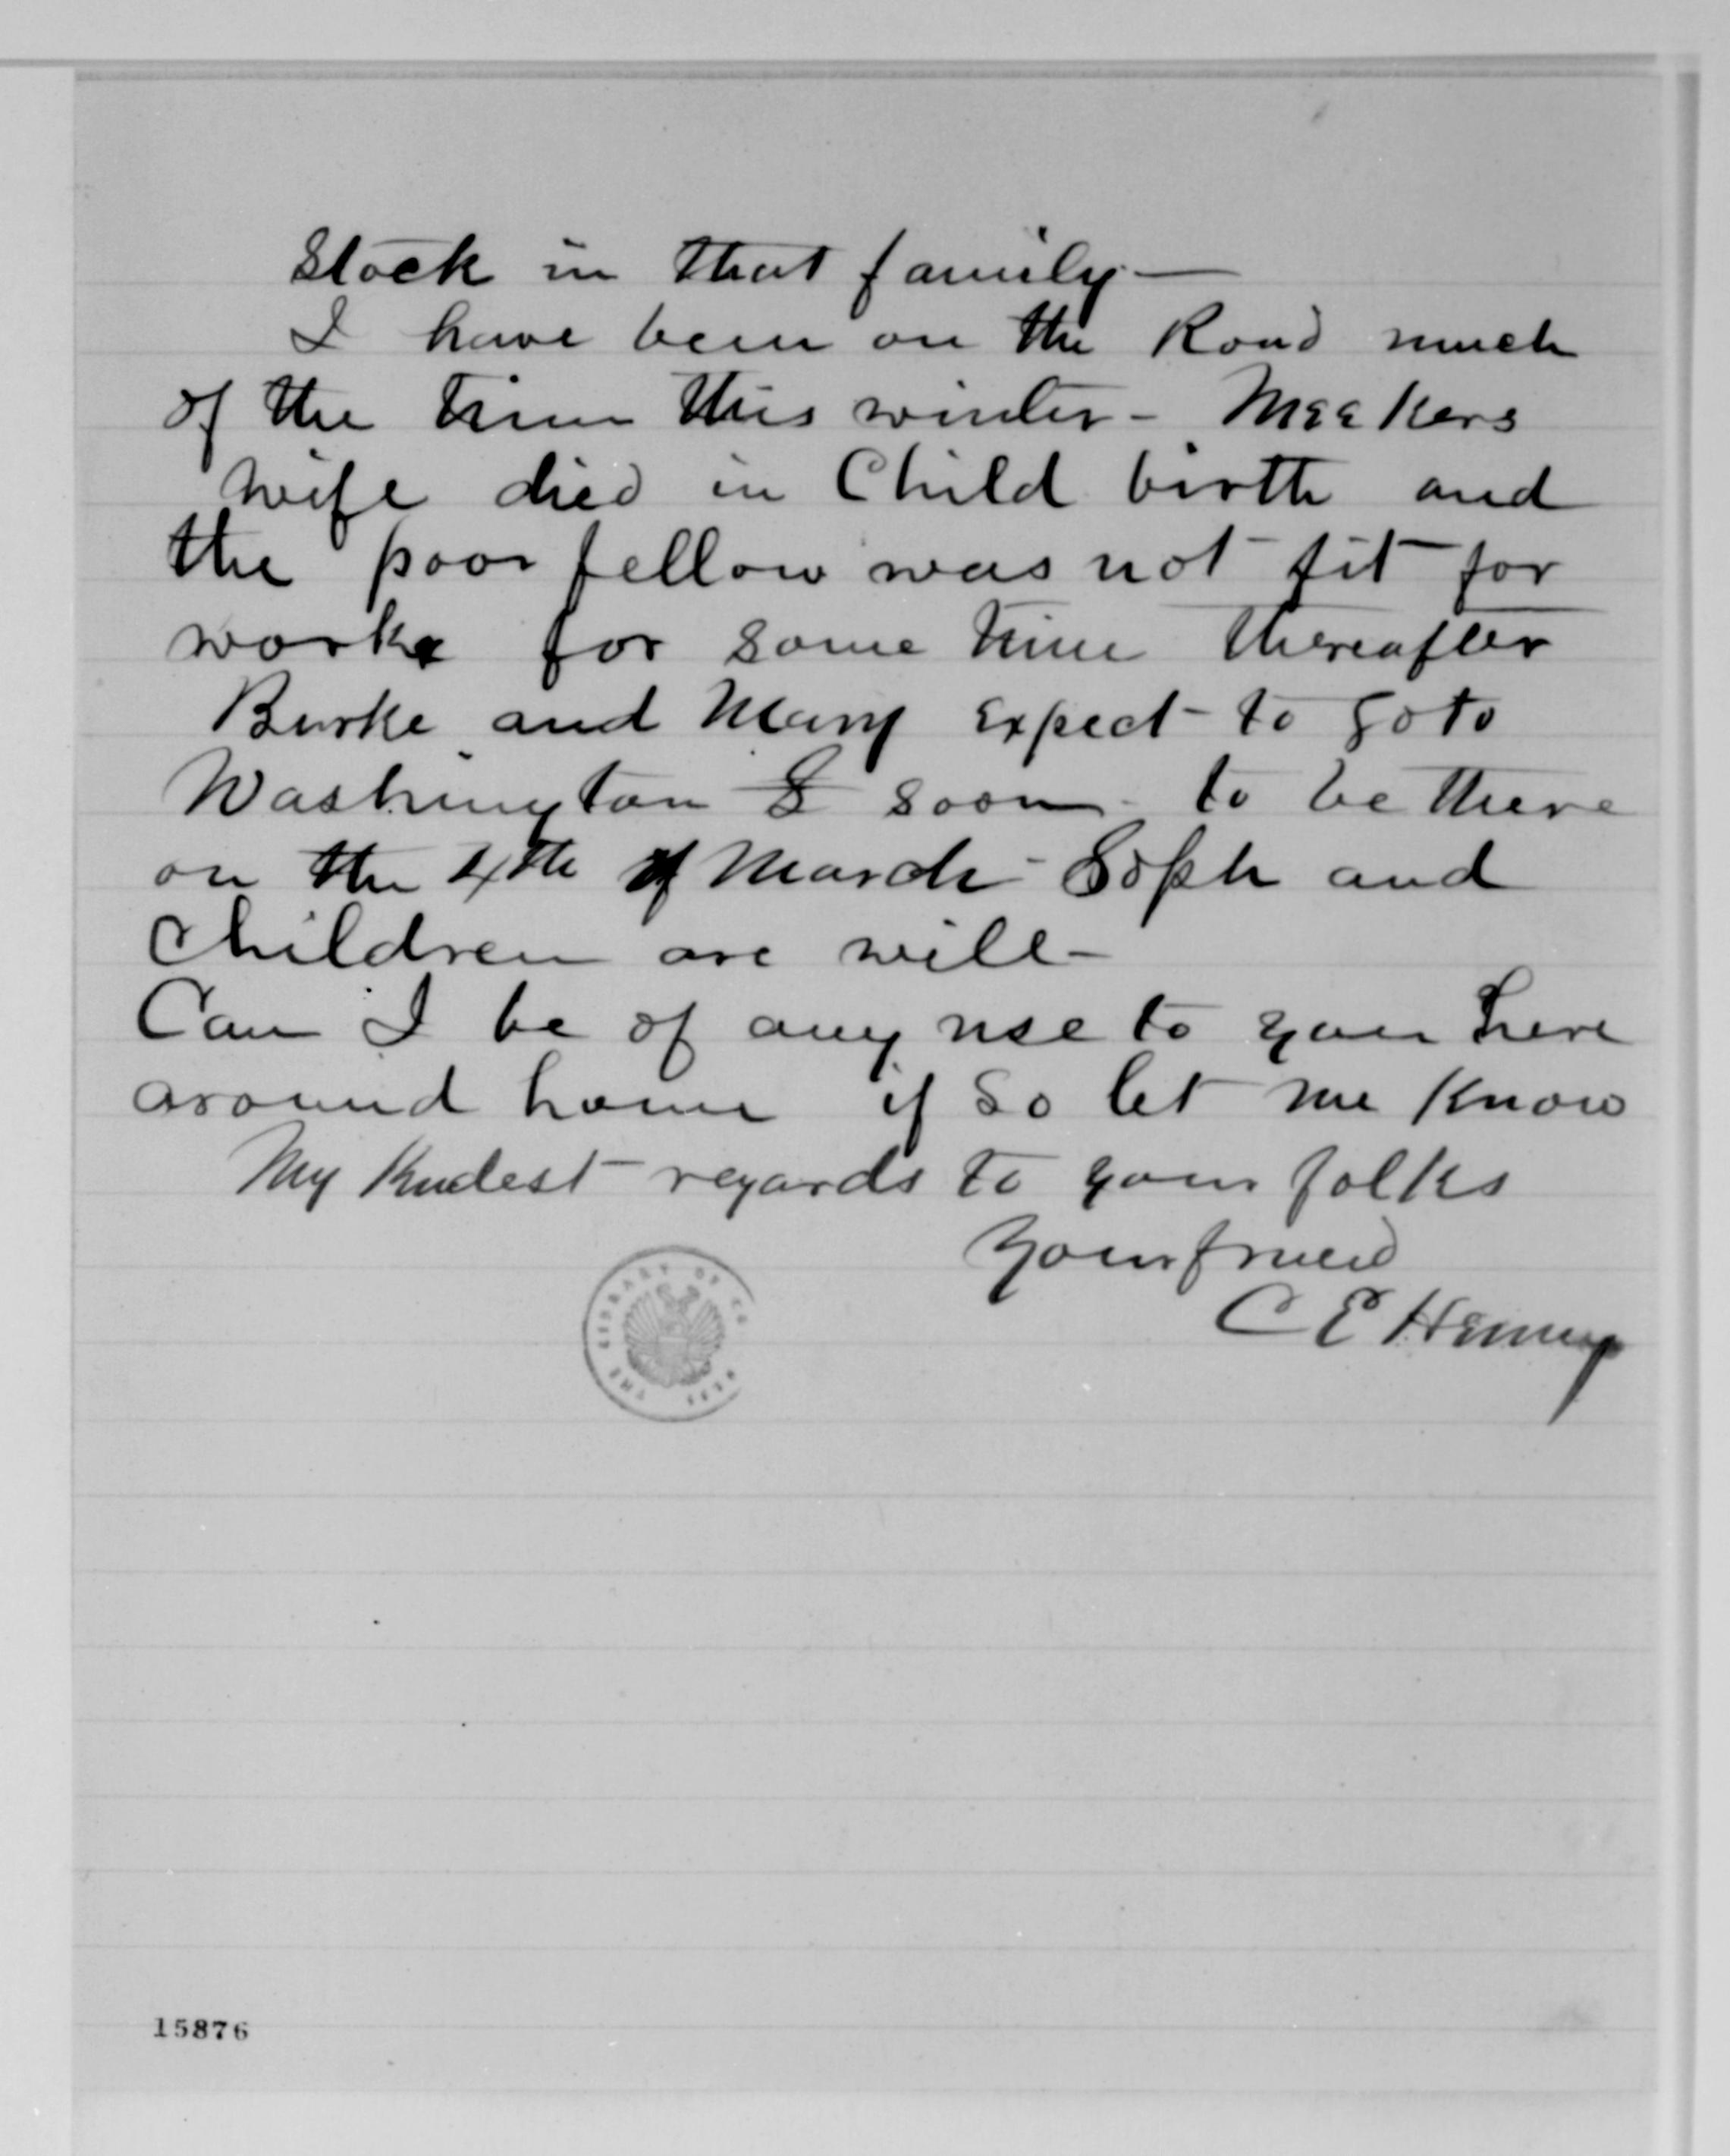 Stock in that family—
I have been on the Road much
of the time this winter - Meekers
wife died in Child birth and
the poor fellow was not fit for
work for some time thereafter
Burke and Mary expect to go to
Washington soon - to be there
on the 4th of March - Soph and
children are well -
Can I be of any use to you here
around home if so let me know
My kindest regards to your folks
Your friend
C E Henry
THE LIBRARY OF CO
15876